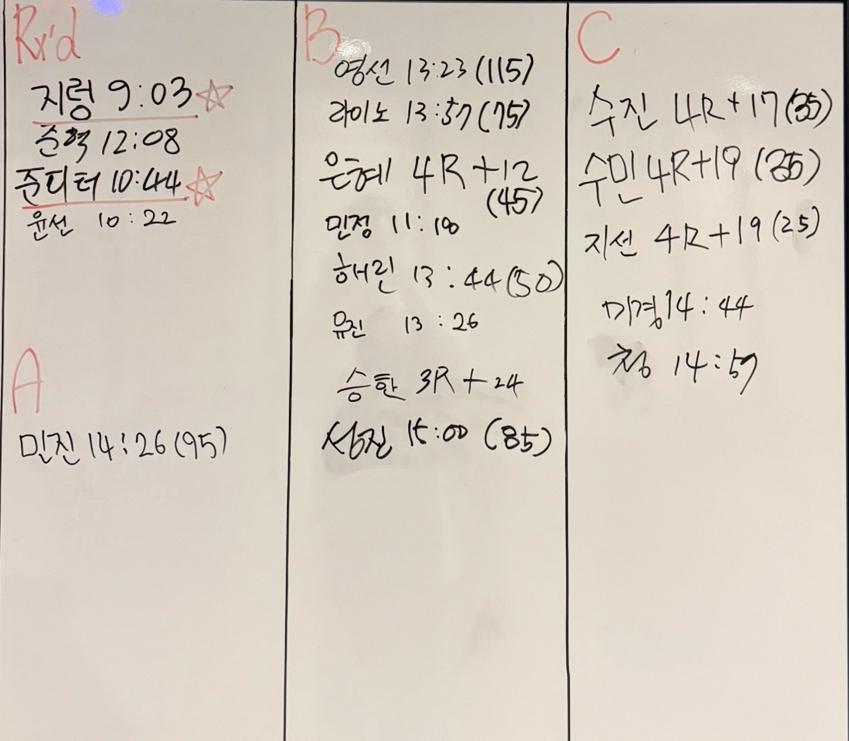 Rx'd
지렁 9:03 ☆
준혁 12:08
준디터 10:44 ☆
윤선 10:22
A
민진 14:26 (95)
B
영선 13:23 (115)
라이노 13:57 (75)
은혜 4R+12
(45)
민정 11:18
해린 13:44 (50)
유진 13:26
승한 3R+24
성진 15:00 (85)
C
수진 4R+17 (35)
수민 4R+19 (35)
지선 4R+19 (25)
미경 14:44
청 14:57